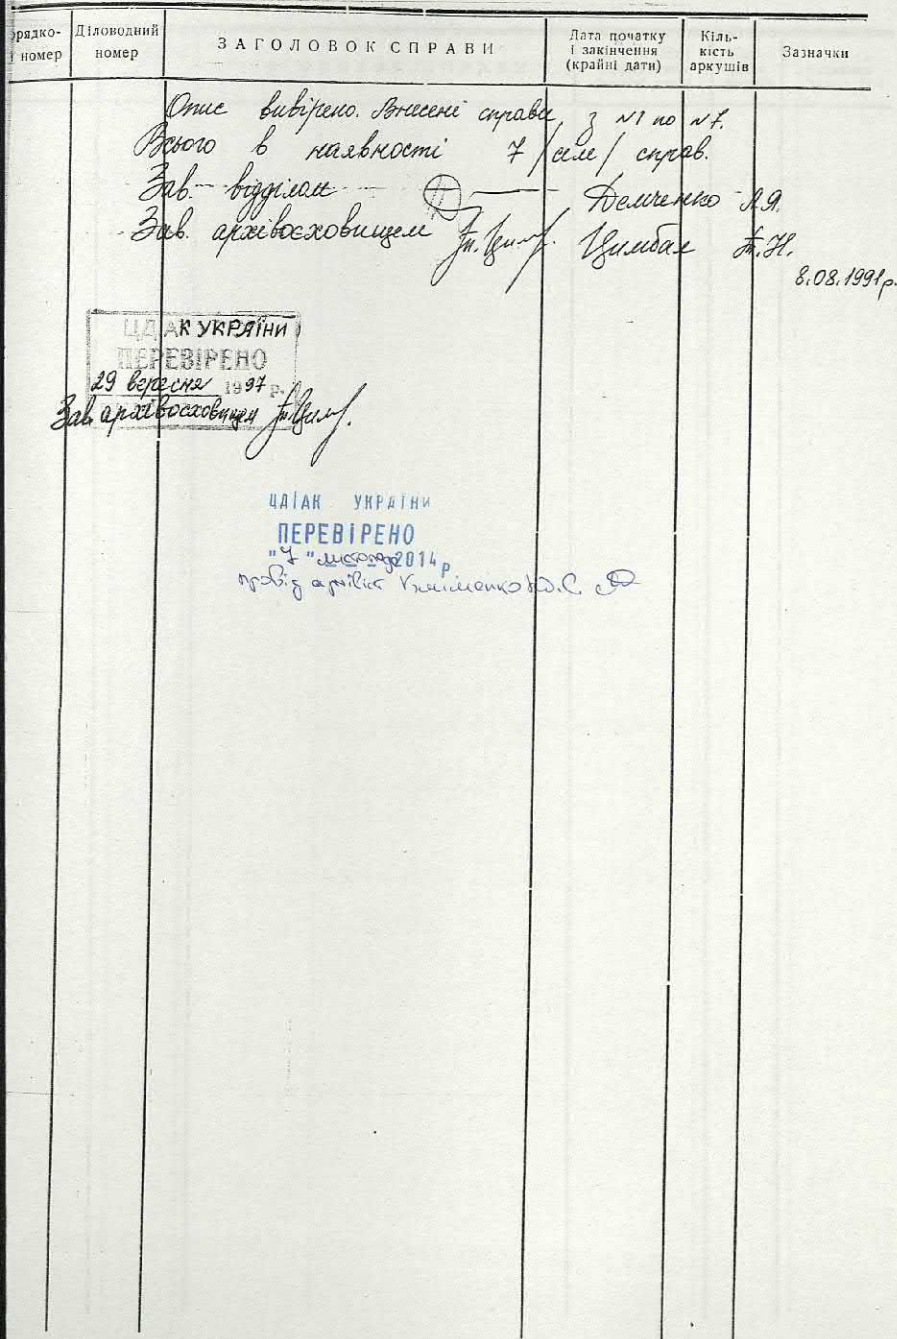 рядко- Діловодний номер ЗАГОЛОВОК СПРАВИ Дата початку і закінчення (крайні дати) Кіль- кість аркушів Зазначки
номер
Опис вивірено. Внесені справи з №1 по №7.
Всього в наявності 7 /сім/ справ.
Зав. відділом Демченко Л.Я.
Зав. архівосховищем Цимбал Т.Н.
8.08.1991р.
ЦДІАК УКРАЇНИ
ПЕРЕВІРЕНО
29 вересня 1997 р.
Зав. архівосховищем
ЦДІАК УКРАЇНИ
ПЕРЕВІРЕНО
"7" листопада 2014 р
провід архівіст Кліменко Ю.С.